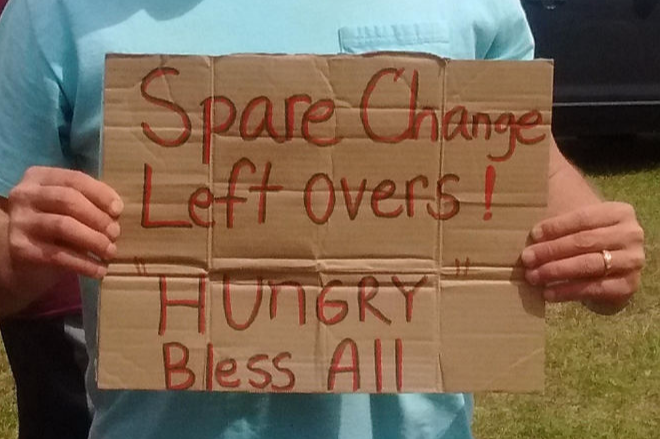 Spare Change
Left overs!
"HUnGRY"
Bless All